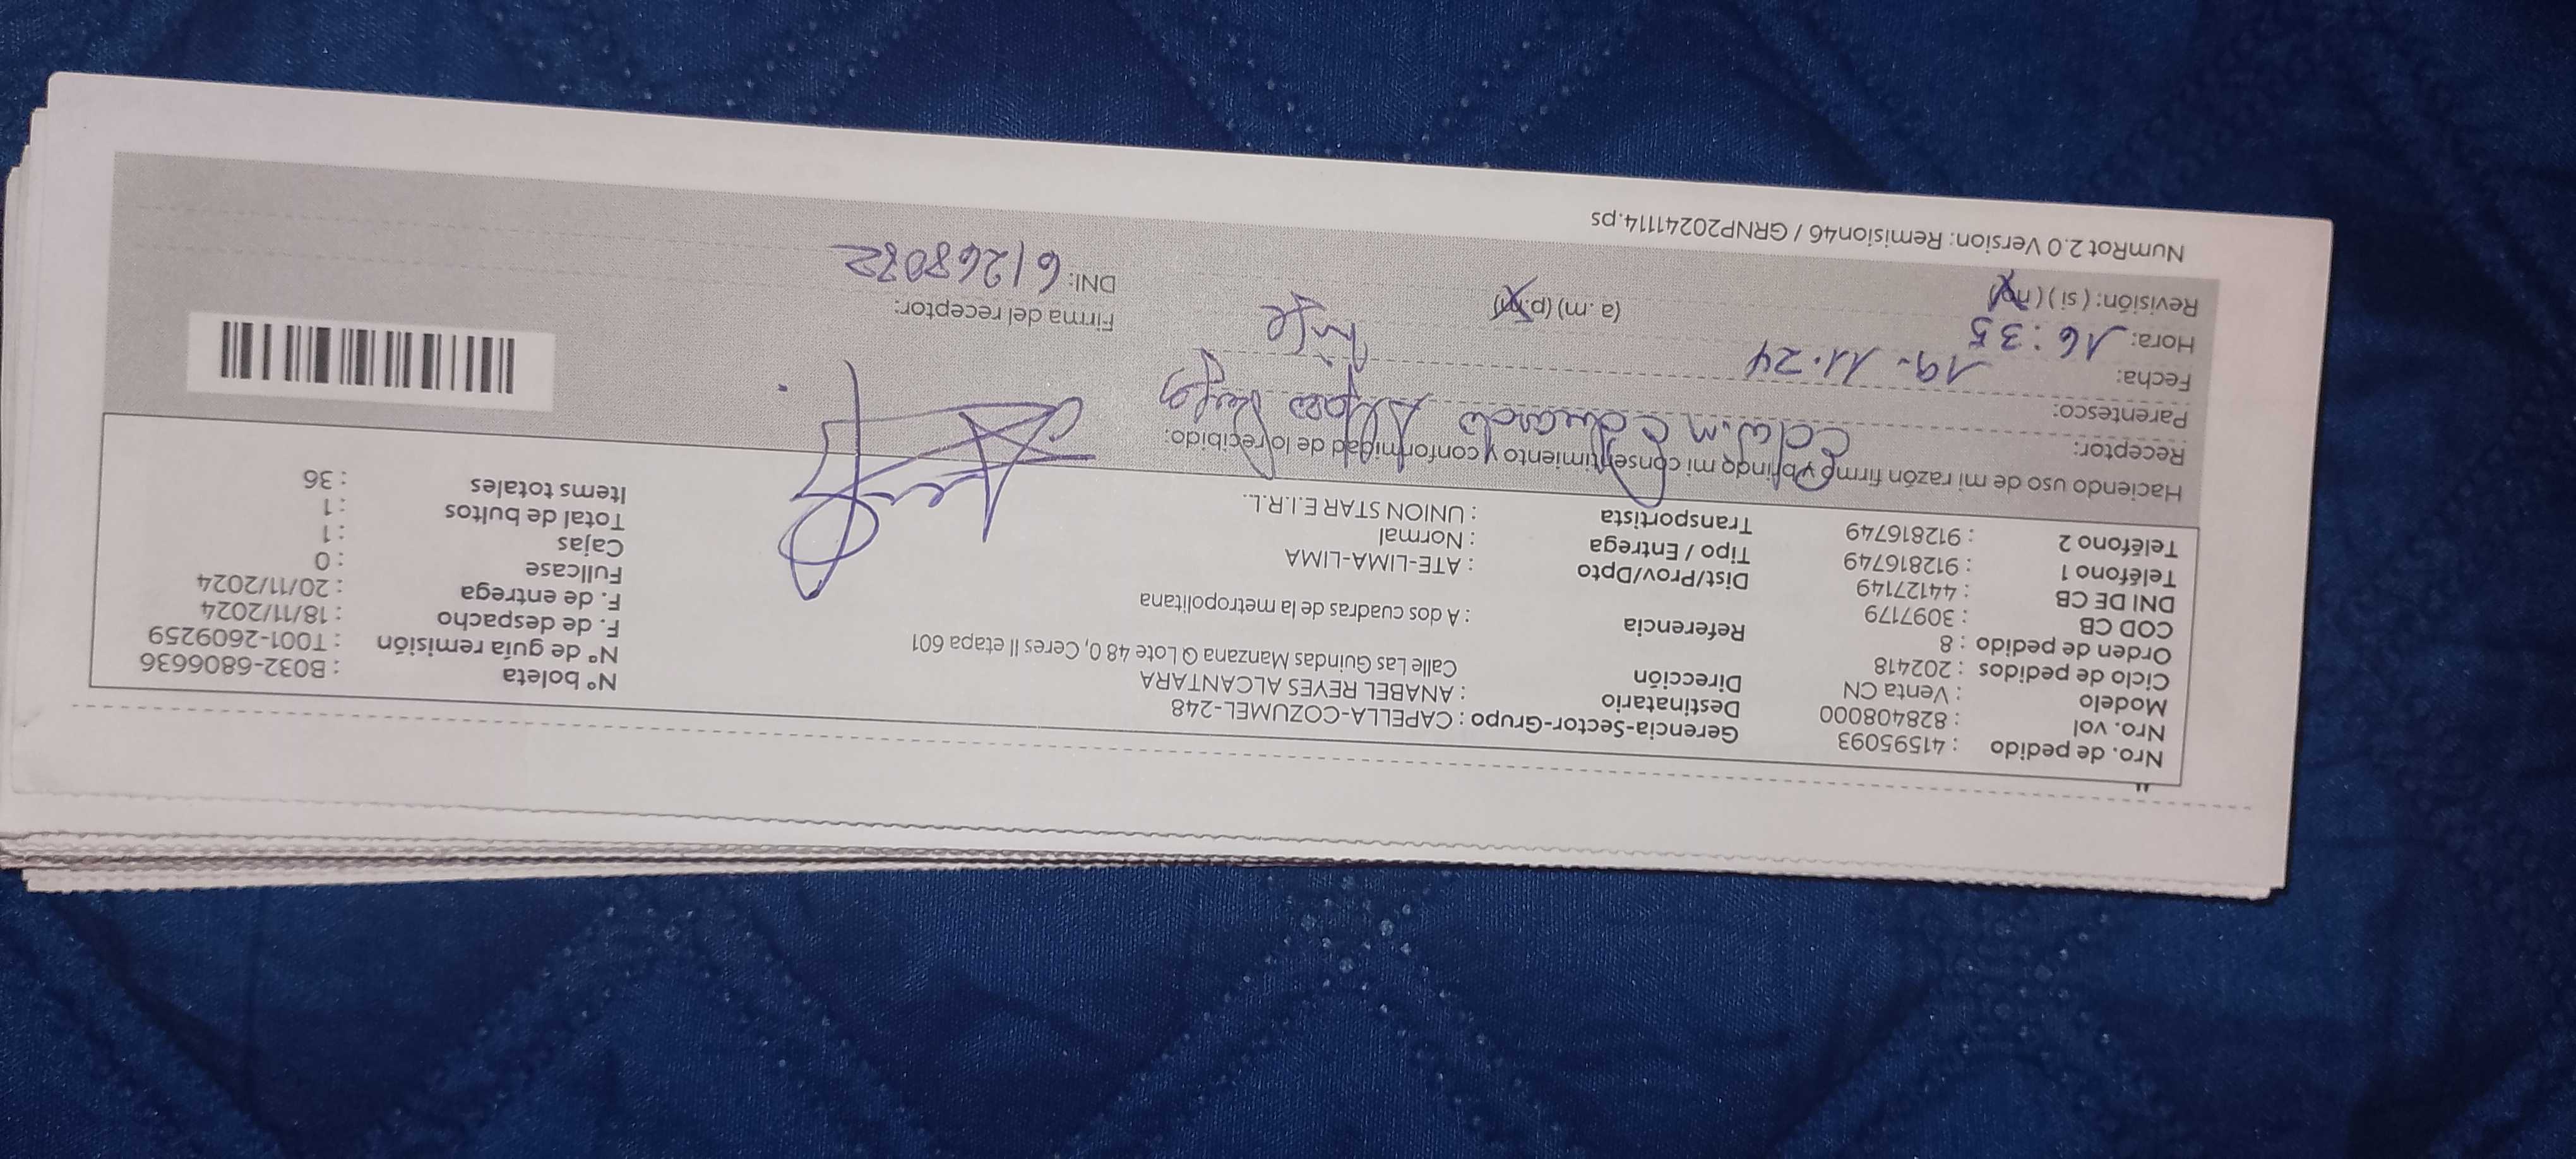 Nro. de pedido : 41595093 Gerencia-Sector-Grupo : CAPELLA-COZUMEL-248 Nº boleta : B032-6806636
Nro. vol : 828408000 Destinatario : ANABEL REYES ALCANTARA Nº de guía remisión : T001-2609259
Modelo : Venta CN Dirección Calle Las Guindas Manzana Q Lote 48 0, Ceres II etapa 601 F. de despacho : 18/11/2024
Ciclo de pedidos : 202418 Referencia : A dos cuadras de la metropolitana F. de entrega : 20/11/2024
Orden de pedido : 8 Dist/Prov/Dpto : ATE-LIMA-LIMA Fullcase : 0
COD CB : 3097179 Tipo / Entrega : Normal Cajas : 1
DNI DE CB : 44127149 Transportista : UNION STAR E.I.R.L. Total de bultos : 1
Teléfono 1 : 912816749 Items totales : 36
Teléfono 2 : 912816749
Haciendo uso de mi razón firmo y brindo mi consentimiento y conformidad de lo recibido:
Receptor: Eduardo
Parentesco:
Fecha: 19-11-24
Hora: 16:35 (a. m) (p.m)
Revisión: ( si ) ( no )
Firma del receptor:
DNI: 61268082
NumRot 2.0 Version: Remision46 / GRNP20241114.ps